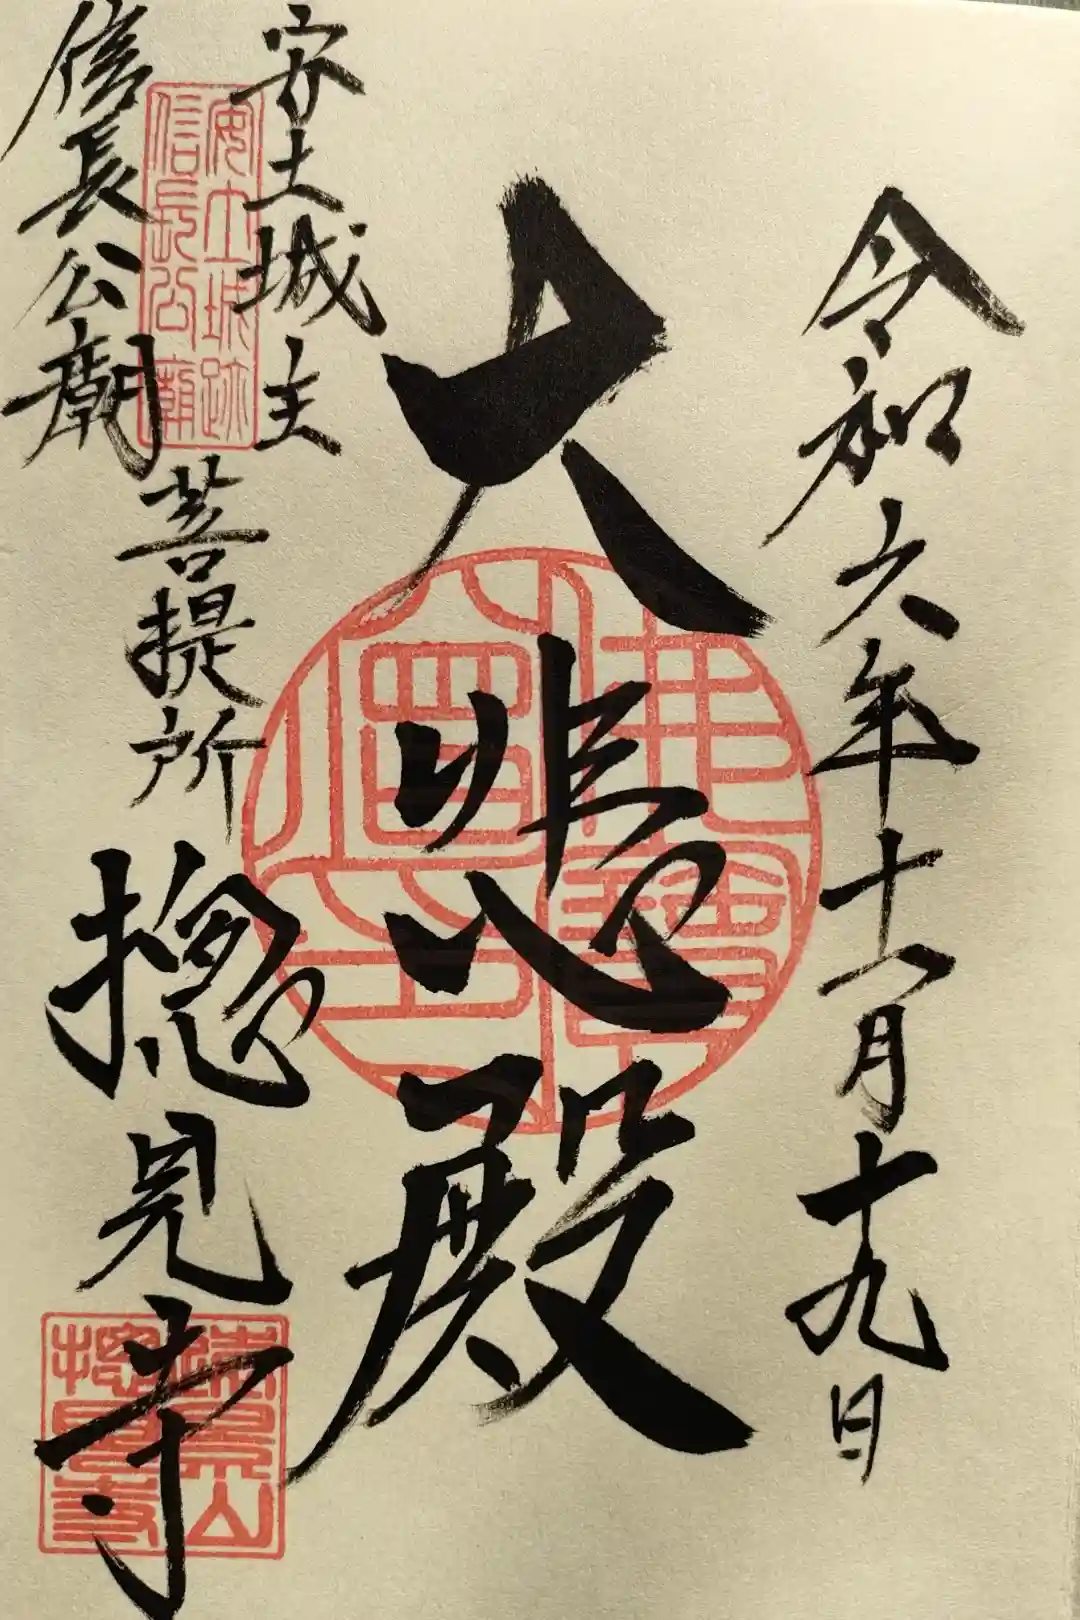 令和六年十一月十九日
大悲殿
安土城主
信長公廟
菩提所
摠見寺
安土城跡
信長公廟
遠景山
摠見寺